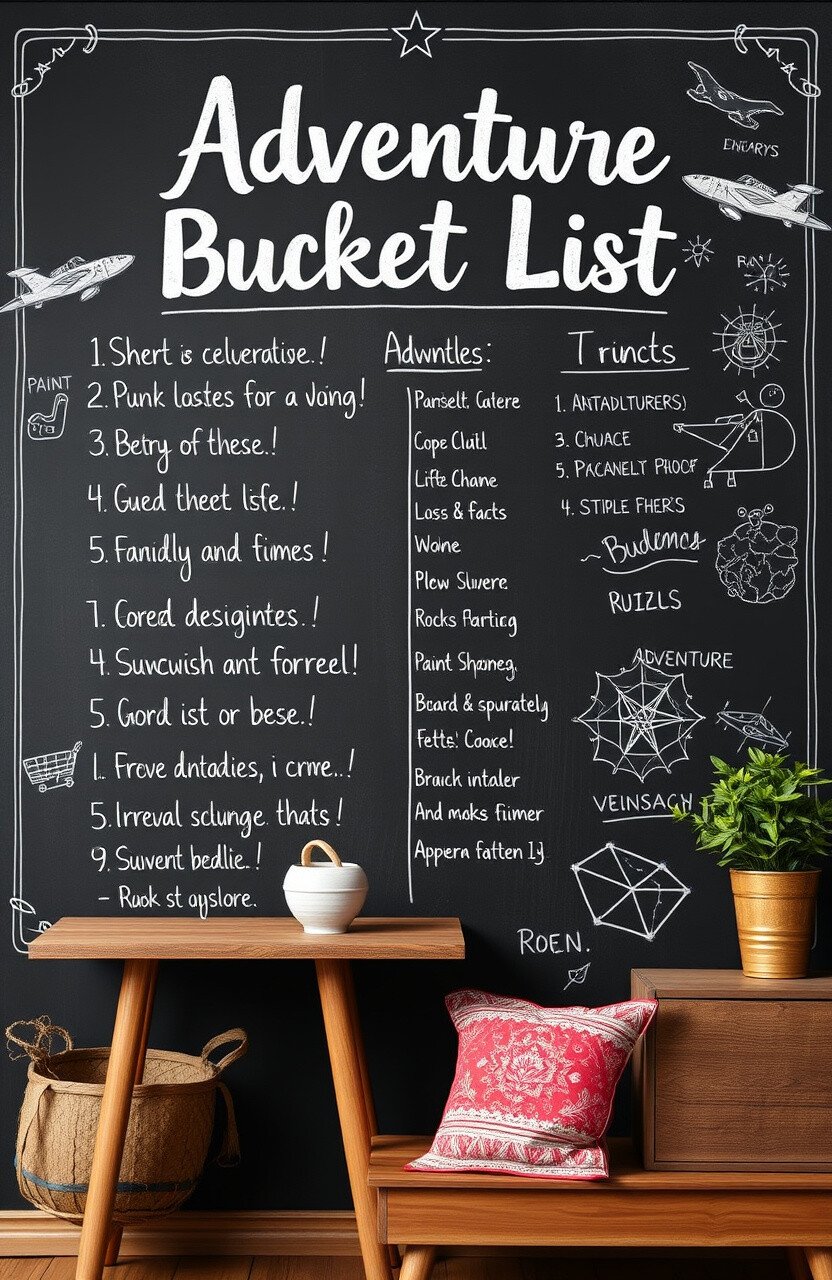 Adventure
Bucket List
1. Shert is celuerative.!
2. Punk lastes for a Joing!
3. Betry of these.!
4. Gued theet life.!
5. Fanidly and fimes!
7. Cored desigintes.!
4. Suvcwish ant forreel!
5. Gord ist or bese.!
1. Frove dntadies, i crnre..!
5. Irreval sclunge thats!
9. Suivent bedlie.!
- Raok st ayslore.
Adwntles:
Parselt, Catere
Cope Clutl
Lifte Chane
Loss & facts
Wolne
Plew Sluvere
Rocks Parting
Paint Shoneg,
Board & spurately
Fette! Cooce!
Braick intaler
And moks fiimer
Appern fatten
Trincts
1. ANTADLTURERS)
3. CHUACE
5. PACANELT PHOOF
4. STIPLE FHER'S
~ Budencs
RUIZLS
ADVENTURE
VEINSACH
ROEN.
PAINT
ENEARYS